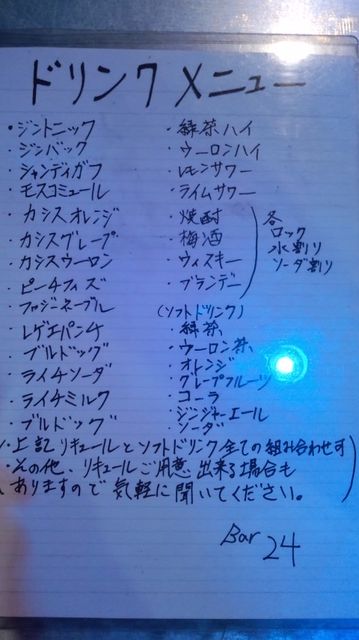 ドリンクメニュー
・ジントニック
・ジンバック
・シャンディガフ
・モスコミュール
・カシスオレンジ
・カシスグレープ
・カシスウーロン
・ピーチフィズ
・ファジーネーブル
・レゲエパンチ
・ブルドッグ
・ライチソーダ
・ライチミルク
・ブルドッグ
・緑茶ハイ
・ウーロンハイ
・レモンサワー
・ライムサワー
・焼酎
・梅酒
・ウィスキー
・ブランデー
各
ロック
水割り
ソーダ割り
(ソフトドリンク)
・緑茶
・ウーロン茶
・オレンジ
・グレープフルーツ
・コーラ
・ジンジャーエール
・ソーダ
・上記リキュールとソフトドリンク全ての組み合わせ可
・その他、リキュールご用意出来る場合も
ありますので気軽に聞いてください。
Bar 24